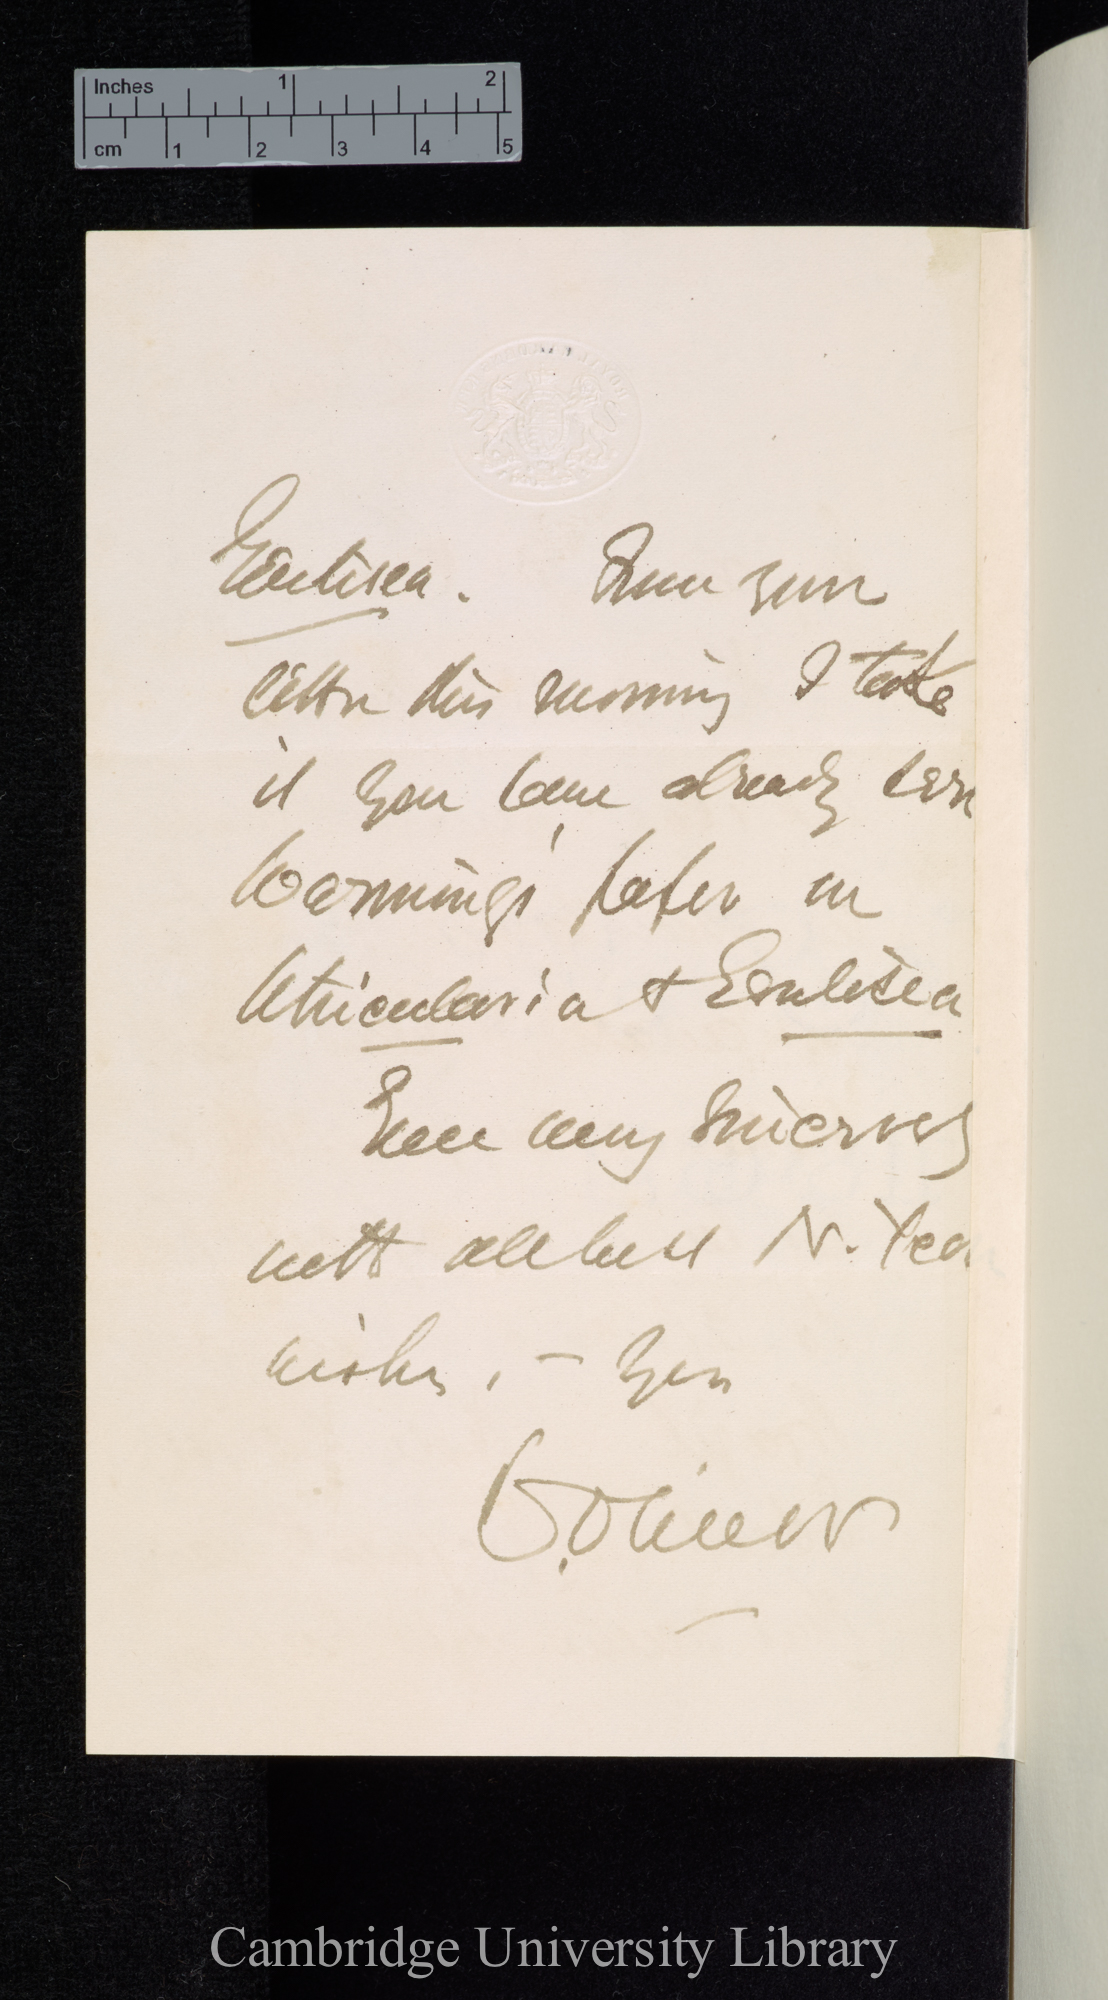 Inches 1 2
cm 1 2 3 4 5
Genlisea. From your
letter this morning I take
it you have already seen
Warming's paper on
Utricularia & Genlisea
Ever very sincerely
with all best N. Year
wishes, – Yrs
D. Oliver
Cambridge University Library